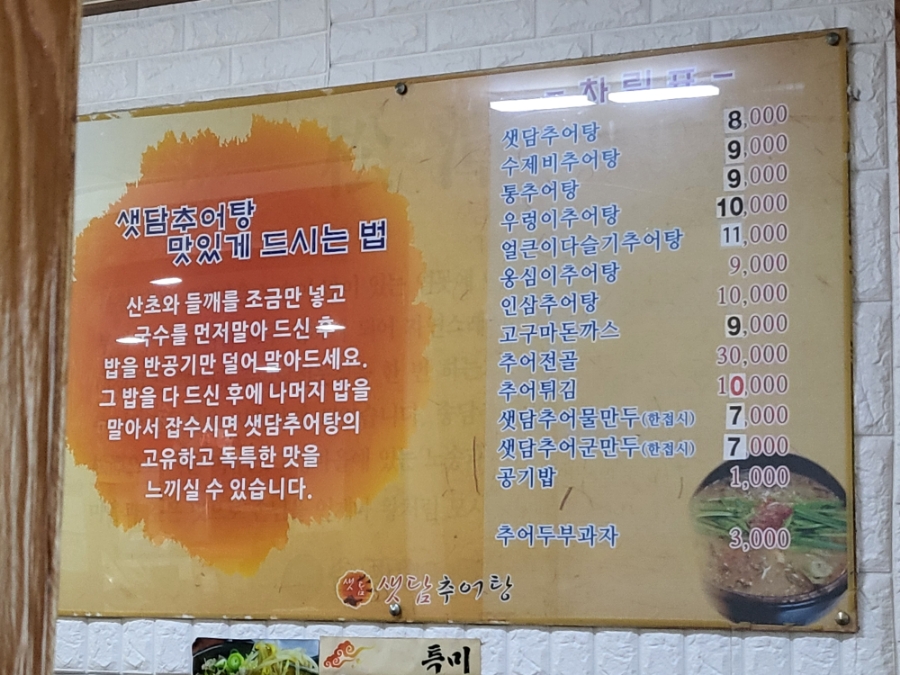 샛담추어탕
맛있게 드시는 법
산초와 들깨를 조금만 넣고
국수를 먼저말아 드신 후
밥을 반공기만 덜어 말아드세요.
그 밥을 다 드신 후에 나머지 밥을
말아서 잡수시면 샛담추어탕의
고유하고 독특한 맛을
느끼실 수 있습니다.
- 차림표 -
샛담추어탕 8,000
수제비추어탕 9,000
통추어탕 9,000
우렁이추어탕 10,000
얼큰이다슬기추어탕 11,000
옹심이추어탕 9,000
인삼추어탕 10,000
고구마돈까스 9,000
추어전골 30,000
추어튀김 10,000
샛담추어물만두(한접시) 7,000
샛담추어군만두(한접시) 7,000
공기밥 1,000
추어두부과자 3,000
샛담 샛담추어탕
특미